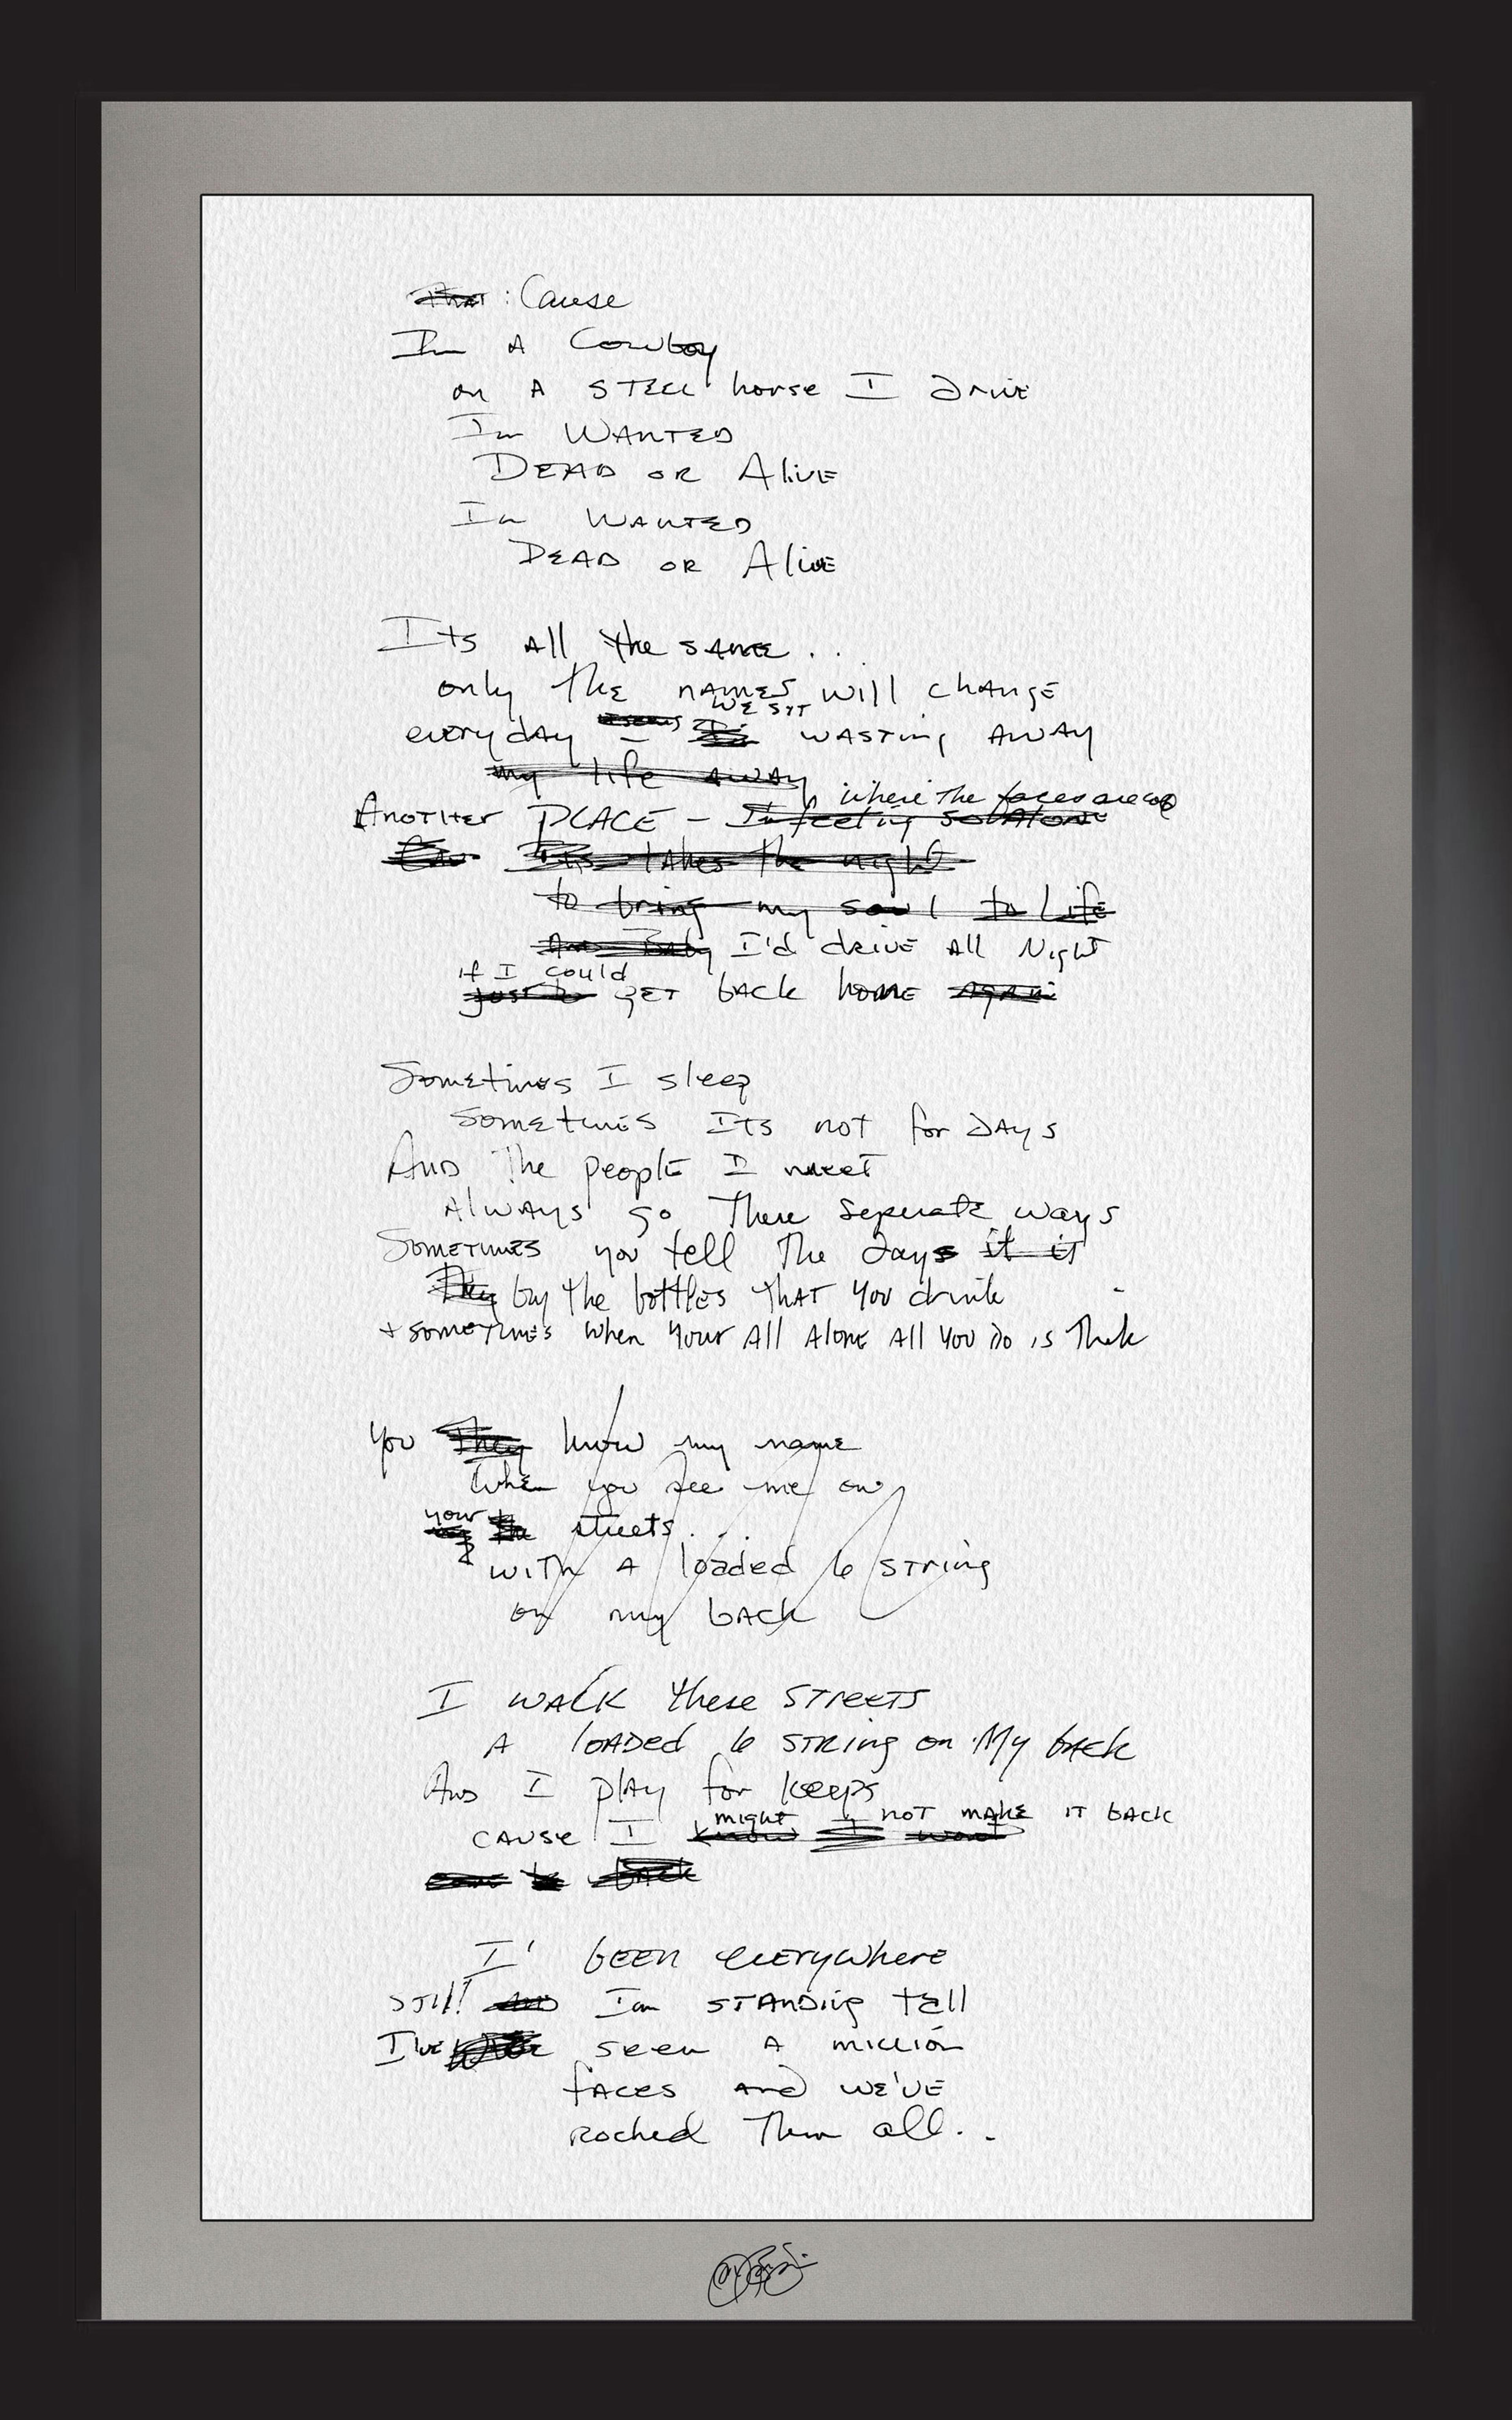 That : Cause
Im A Cowboy
on A STEEL horse I Drive
Im WANTED
DEAD OR AliVE
Im WANTED
DEAD OR AliVE
Its All the SAME . .
only The NAMES will chANgE
WE SIT
everydAy WASTing AWAY
my life AWAY
where The faces are so
ANOTHER PLACE - Im feeling so Alone
Its takes the night
to bring my soul to LifE
And Baby I'd drivE All Night
if I could
just to gET bACk homE AgAin
Sometimes I sleep
Sometimes ITs not for DAys
AND The peoplE I meet
AlwAys go There Seperate ways
SOMETIMES you tell The days it it
by The bottlEs THAT YOU drink
+ SOMETIMES when Your All AlonE All You Do is Think
You They know my name
When you see me on
your
streets. . .
WITh A loaded 6 STring
on my bACk
I WALK these STreeTS
A loADed 6 STRing on My bAck
And I plAy for keeps
might I NOT MAKE IT bACK
CAUSE I know want
back
I' bEEn everywherE
STill AND Im STANDing tall
I'vE seen A million
fACes and WE'VE
Rocked Them all. .